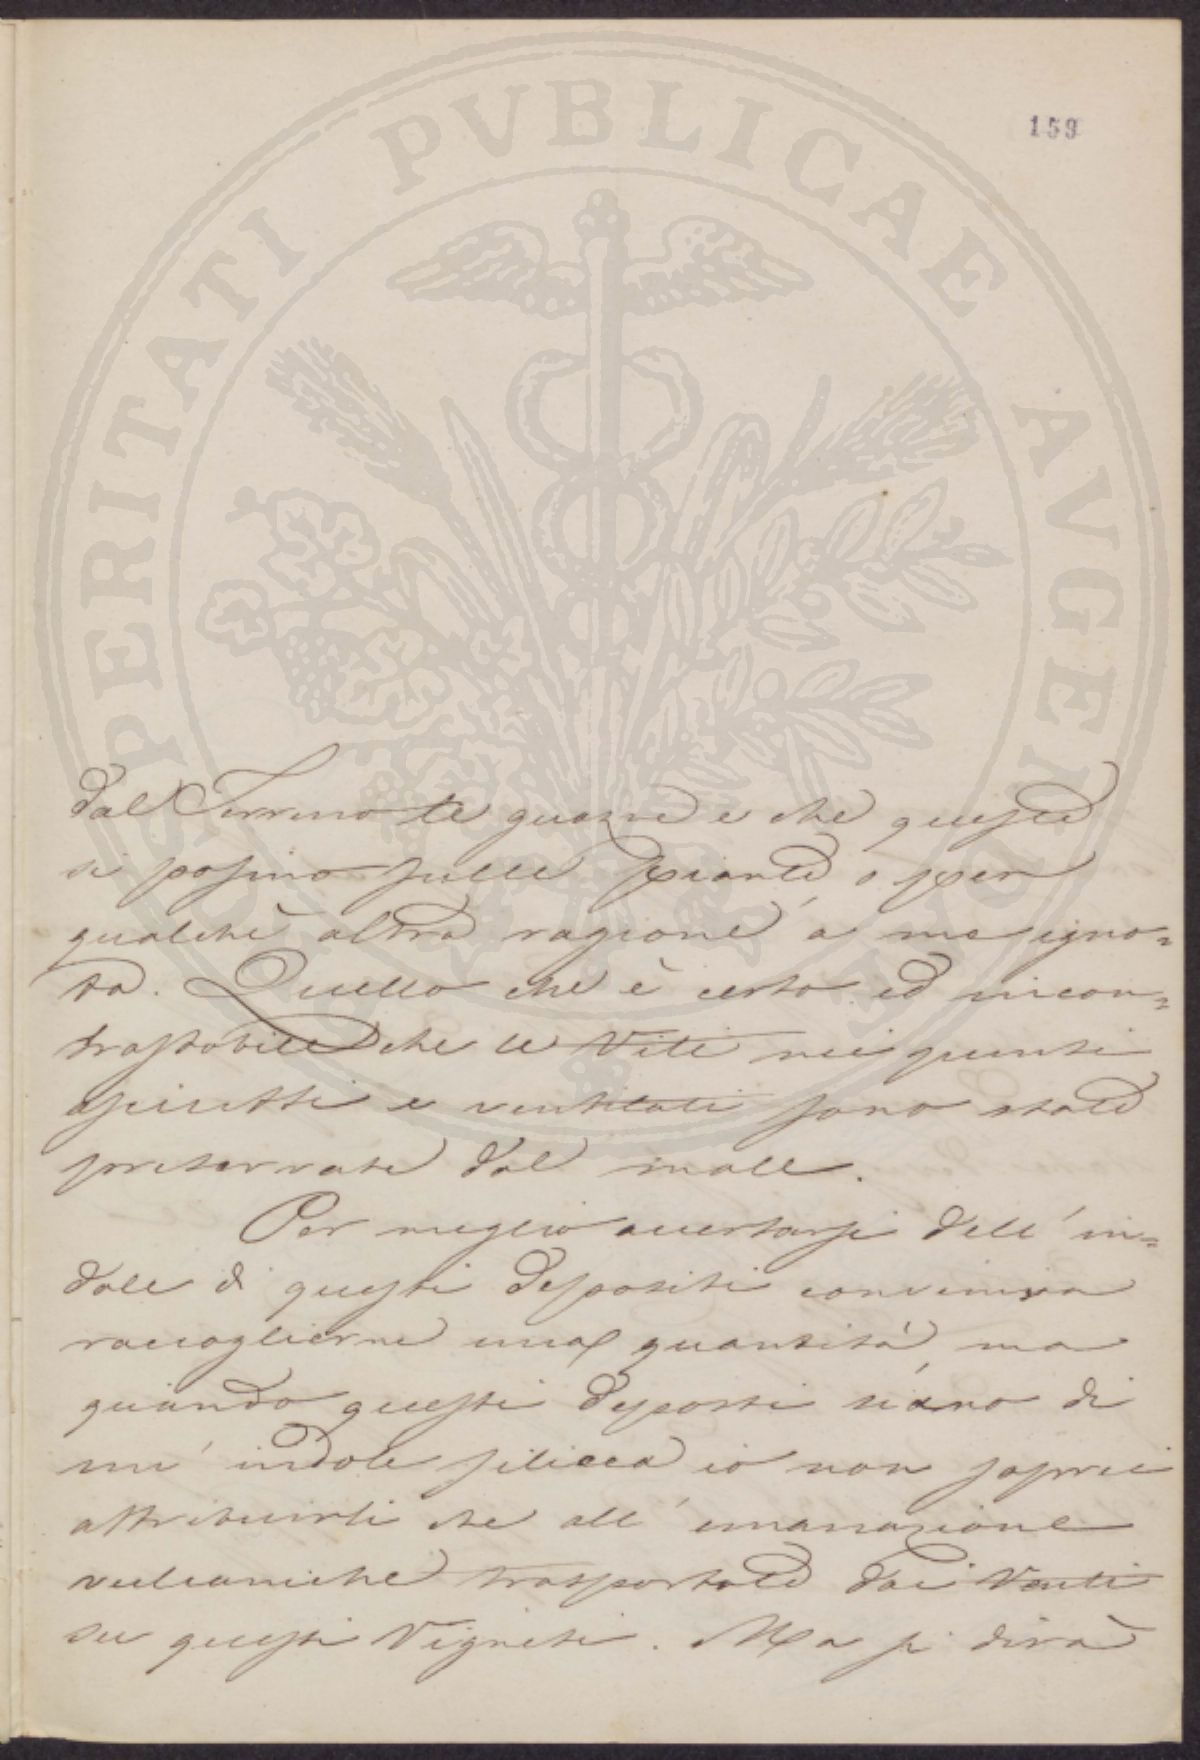 159
PROSPERITATI PVBLICAE AVGENDAE
dal Terreno le guaste e che queste
si posino sulle piante, o per
qualche altra ragione a me igno=
ta. Quello che è certo ed incon=
trastabile che le Viti nei punti
asciutti e ventilati sono state
preservate dal male.
Per meglio accertarsi dell'in=
dole di questi depositi conveniva
raccoglierne una quantità, ma
quando questi depositi siano di
un' indole silicea io non saprei
attribuirli che all' emanazione
vulcaniche trasportate dai Venti
su questi Vigneti. Ma si dirà